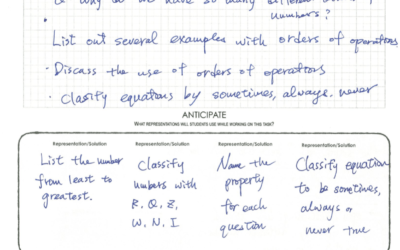 & why do we have so many different
numbers?
List out several examples with orders of operations
· Discuss the use of orders of operations
· Classify equations by sometimes, always, never
ANTICIPATE
WHAT REPRESENTATIONS WILL STUDENTS USE WHILE WORKING ON THIS TASK?
Representation/Solution
List the number
from least to
greatest.
Representation/Solution
Classify
numbers with
R, Q, Z,
W, N, I
Representation/Solution
Name the
property
for each
question
Representation/Solution
Classify equation
to be sometimes,
always or
never true